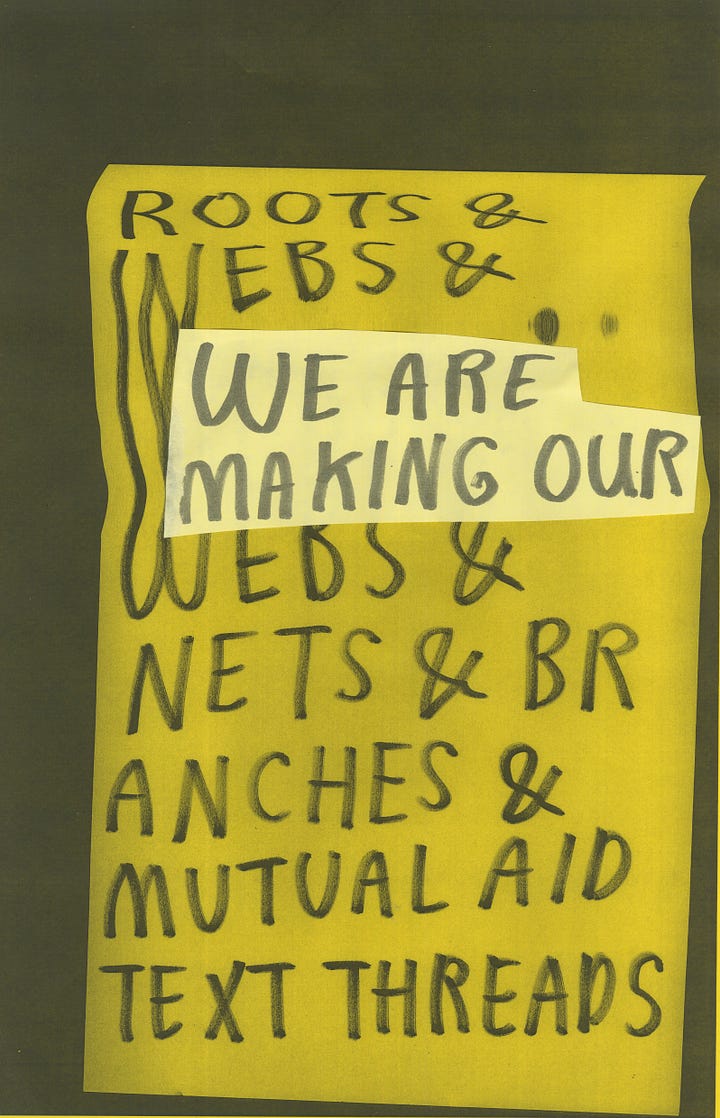 ROOTS &
WEBS &
WE ARE
MAKING OUR
WEBS &
NETS & BR
ANCHES &
MUTUAL AID
TEXT THREADS